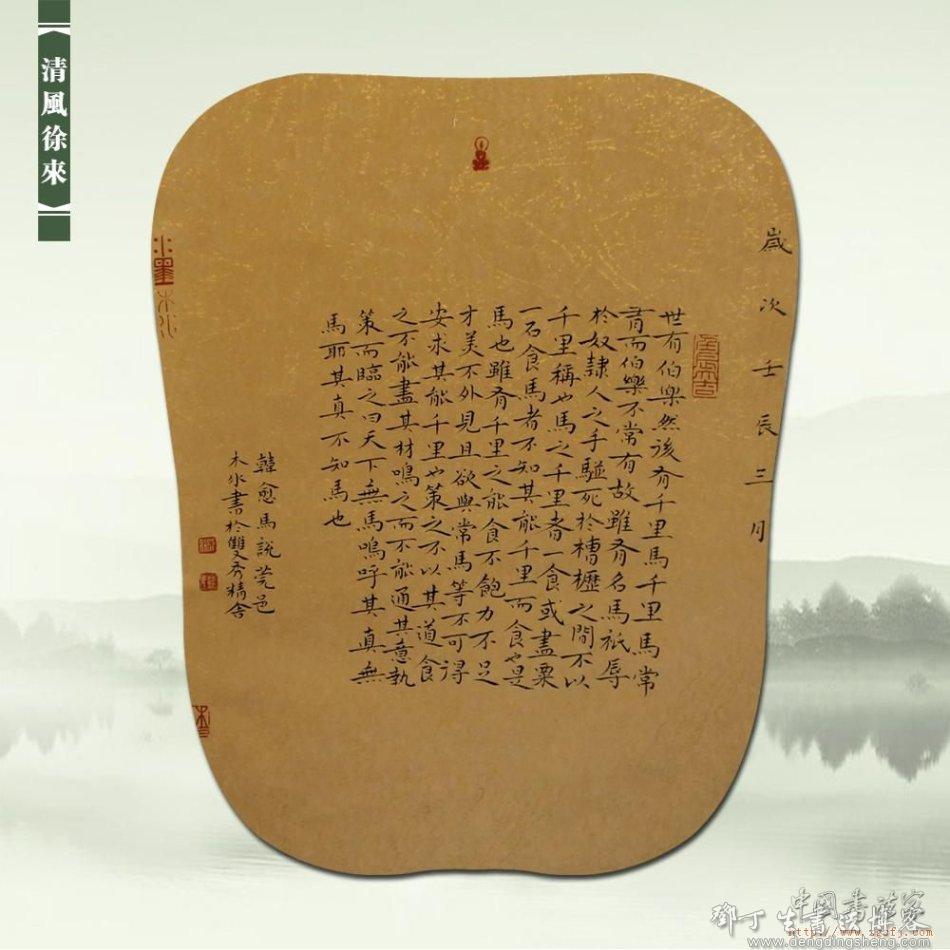 清風徐來
歲次壬辰三月
世有伯樂然後有千里馬千里馬常
有而伯樂不常有故雖有名馬祇辱
於奴隸人之手騈死於槽櫪之間不以
千里稱也馬之千里者一食或盡粟
一石食馬者不知其能千里而食也是
馬也雖有千里之能食不飽力不足
才美不外見且欲與常馬等不可得
安求其能千里也策之不以其道食
之不能盡其材鳴之而不能通其意執
策而臨之曰天下無馬嗚呼其真無
馬耶其真不知馬也
韓愈馬說莞邑
木水書於雙秀精舍
鄧丁生書法博客
www.dengdingsheng.com